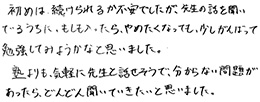 初めは、続けられるか不安でしたが、先生の話を聞い
てるうちに、もし入ったら、やめたくなっても、少しがんばって
勉強してみようかなと思いました。
塾よりも、気軽に先生と話せそうで、分からない問題が
あったら、どんどん聞いていきたいと思いました。